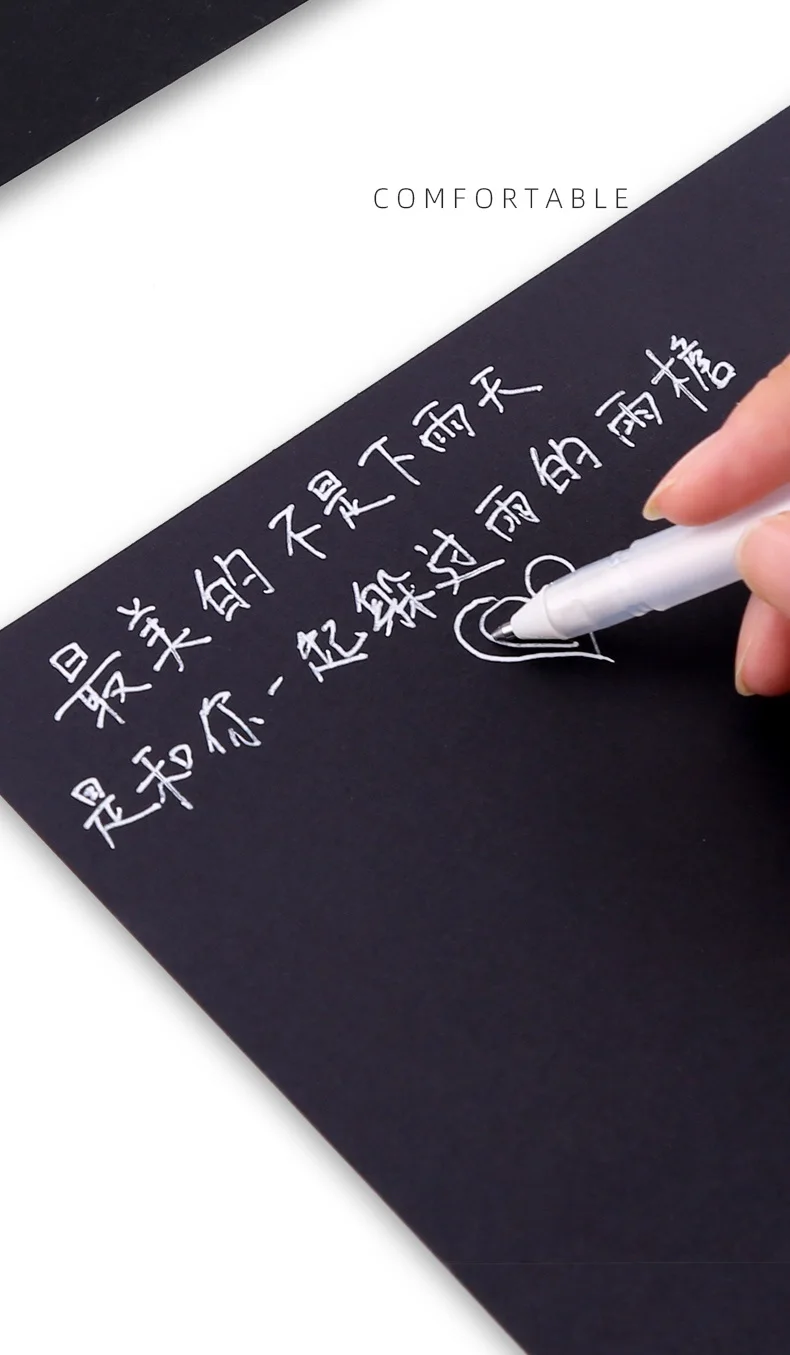 COMFORTABLE
最美的不是下雨天
是和你一起躲过雨的雨檐